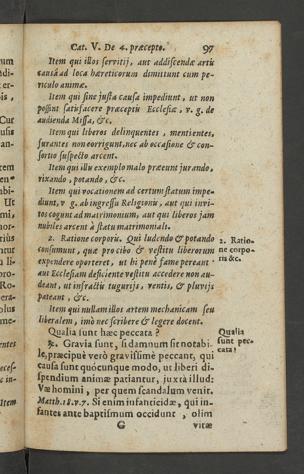 Cat. V. De 4. præcepto. 97
Item qui illos servitij, aut addiscendæ artis
causâ ad loca hæreticorum dimittunt cum pe-
riculo animæ.
Item qui sine justa causa impediunt, ut non
possint satisfacere præceptis Ecclesiæ, v. g. de
audienda Missa, &c.
Item qui liberos delinquentes, mentientes,
furantes non corrigunt, nec ab occasione & con-
sortio suspecto arcent.
Item qui illis exemplo malo præeunt jurando,
rixando, potando, &c.
Item qui vocationem ad certum statum impe-
diunt, v g. ab ingressu Religionis, aut qui invi-
tos cogunt ad matrimonium, aut qui liberos jam
nubiles arcent à statu matrimoniali.
2. Ratione corporis. Qui ludendo & potando
consumunt, quæ pro cibo & vestitu liberorum
expendere oporteret, ut hi penè fame pereant
aut Ecclesiam deficiente vestitu accedere non au-
deant, ut infractis tugurijs, ventis, & pluvijs
pateant, &c.
2. Ratio-
ne corpo-
ris &c.
Item qui nullam illos artem mechanicam seu
liberalem, imò nec scribere & legere docent.
Qualia sunt hæc peccata?
Qualia
sunt pec-
cata?
℞. Gravia sunt, si damnum sit notabi-
le, præcipuè verò gravissimè peccant, qui
causa sunt quocunque modo, ut liberi di-
spendium animæ patiantur, juxta illud:
Væ homini, per quem scandalum venit.
Matth. 18. v. 7. Si enim infanticidæ, qui in-
fantes ante baptismum occidunt, olim
G vitæ